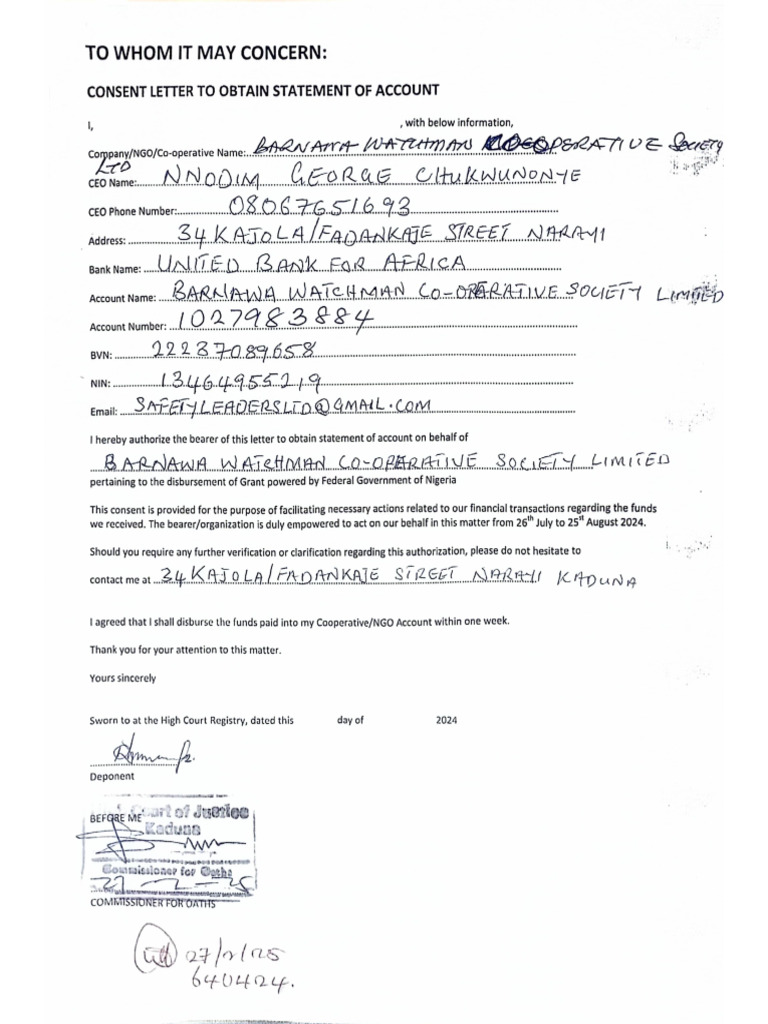 TO WHOM IT MAY CONCERN:
CONSENT LETTER TO OBTAIN STATEMENT OF ACCOUNT
I, , with below information,
Company/NGO/Co-operative Name: BARNAWA WATCHMAN COOPERATIVE SOCIETY
LTD
CEO Name: NNODIM GEORGE CHUKWUNONYE
CEO Phone Number: 08067651693
Address: 34 KAJOLA/FADANKAJE STREET NARAYI
Bank Name: UNITED BANK FOR AFRICA
Account Name: BARNAWA WATCHMAN CO-OPERATIVE SOCIETY LIMITED
Account Number: 1027983884
BVN: 22237089658
NIN: 13464955219
Email: SAFETYLEADERSLTD@GMAIL.COM
I hereby authorize the bearer of this letter to obtain statement of account on behalf of
BARNAWA WATCHMAN CO-OPERATIVE SOCIETY LIMITED
pertaining to the disbursement of Grant powered by Federal Government of Nigeria
This consent is provided for the purpose of facilitating necessary actions related to our financial transactions regarding the funds
we received. The bearer/organization is duly empowered to act on our behalf in this matter from 26th July to 25st August 2024.
Should you require any further verification or clarification regarding this authorization, please do not hesitate to
contact me at 34 KAJOLA/FADANKAJE STREET NARAYI KADUNA
I agreed that I shall disburse the funds paid into my Cooperative/NGO Account within one week.
Thank you for your attention to this matter.
Yours sincerely
Sworn to at the High Court Registry, dated this day of 2024
Deponent
BEFORE ME Court of Justice
Kaduna
Commissioner for Oaths
27 - 2 - 25
COMMISSIONER FOR OATHS
27/2/25
640424.